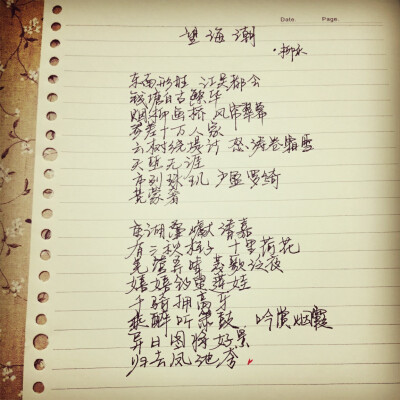 Date. Page.
望海潮
·柳永
东南形胜 江吴都会
钱塘自古繁华
烟柳画桥 风帘翠幕
参差十万人家
云树绕堤沙 怒涛卷霜雪
天堑无涯
市列珠玑 户盈罗绮
竞豪奢
重湖叠巘清嘉
有三秋桂子 十里荷花
羌管弄晴 菱歌泛夜
嬉嬉钓叟莲娃
千骑拥高牙
乘醉听箫鼓 吟赏烟霞
异日图将好景
归去凤池夸